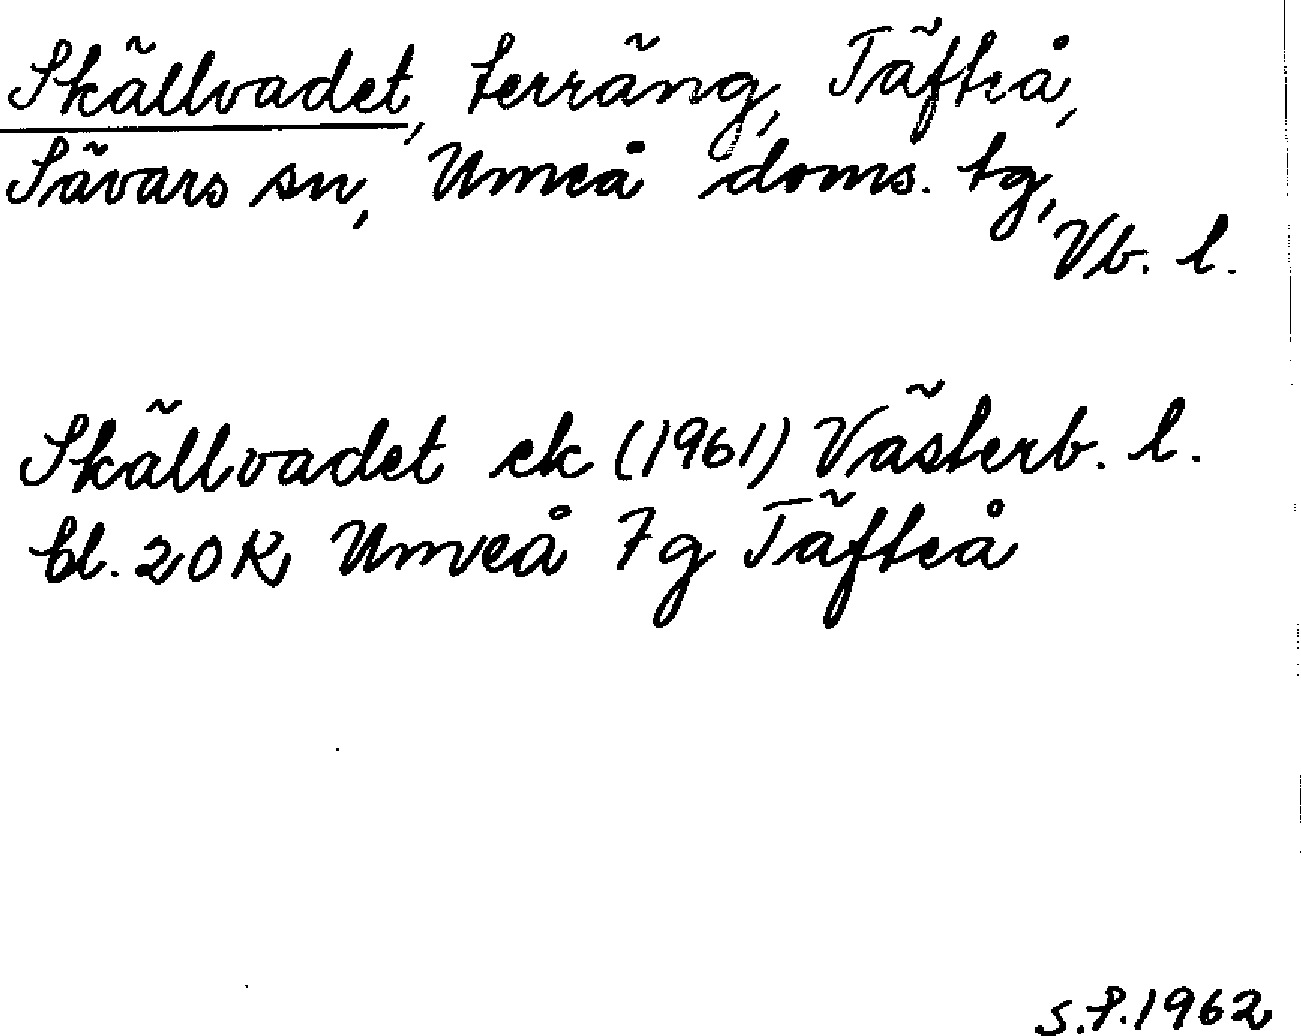 Skällvadet, terräng, Täfteå,
Sävars sn, Umeå doms. tg,
Vb. l.
Skällvadet ek (1961) Västerb. l.
bl. 20K, Umeå 7g Täfteå
S.P. 1962